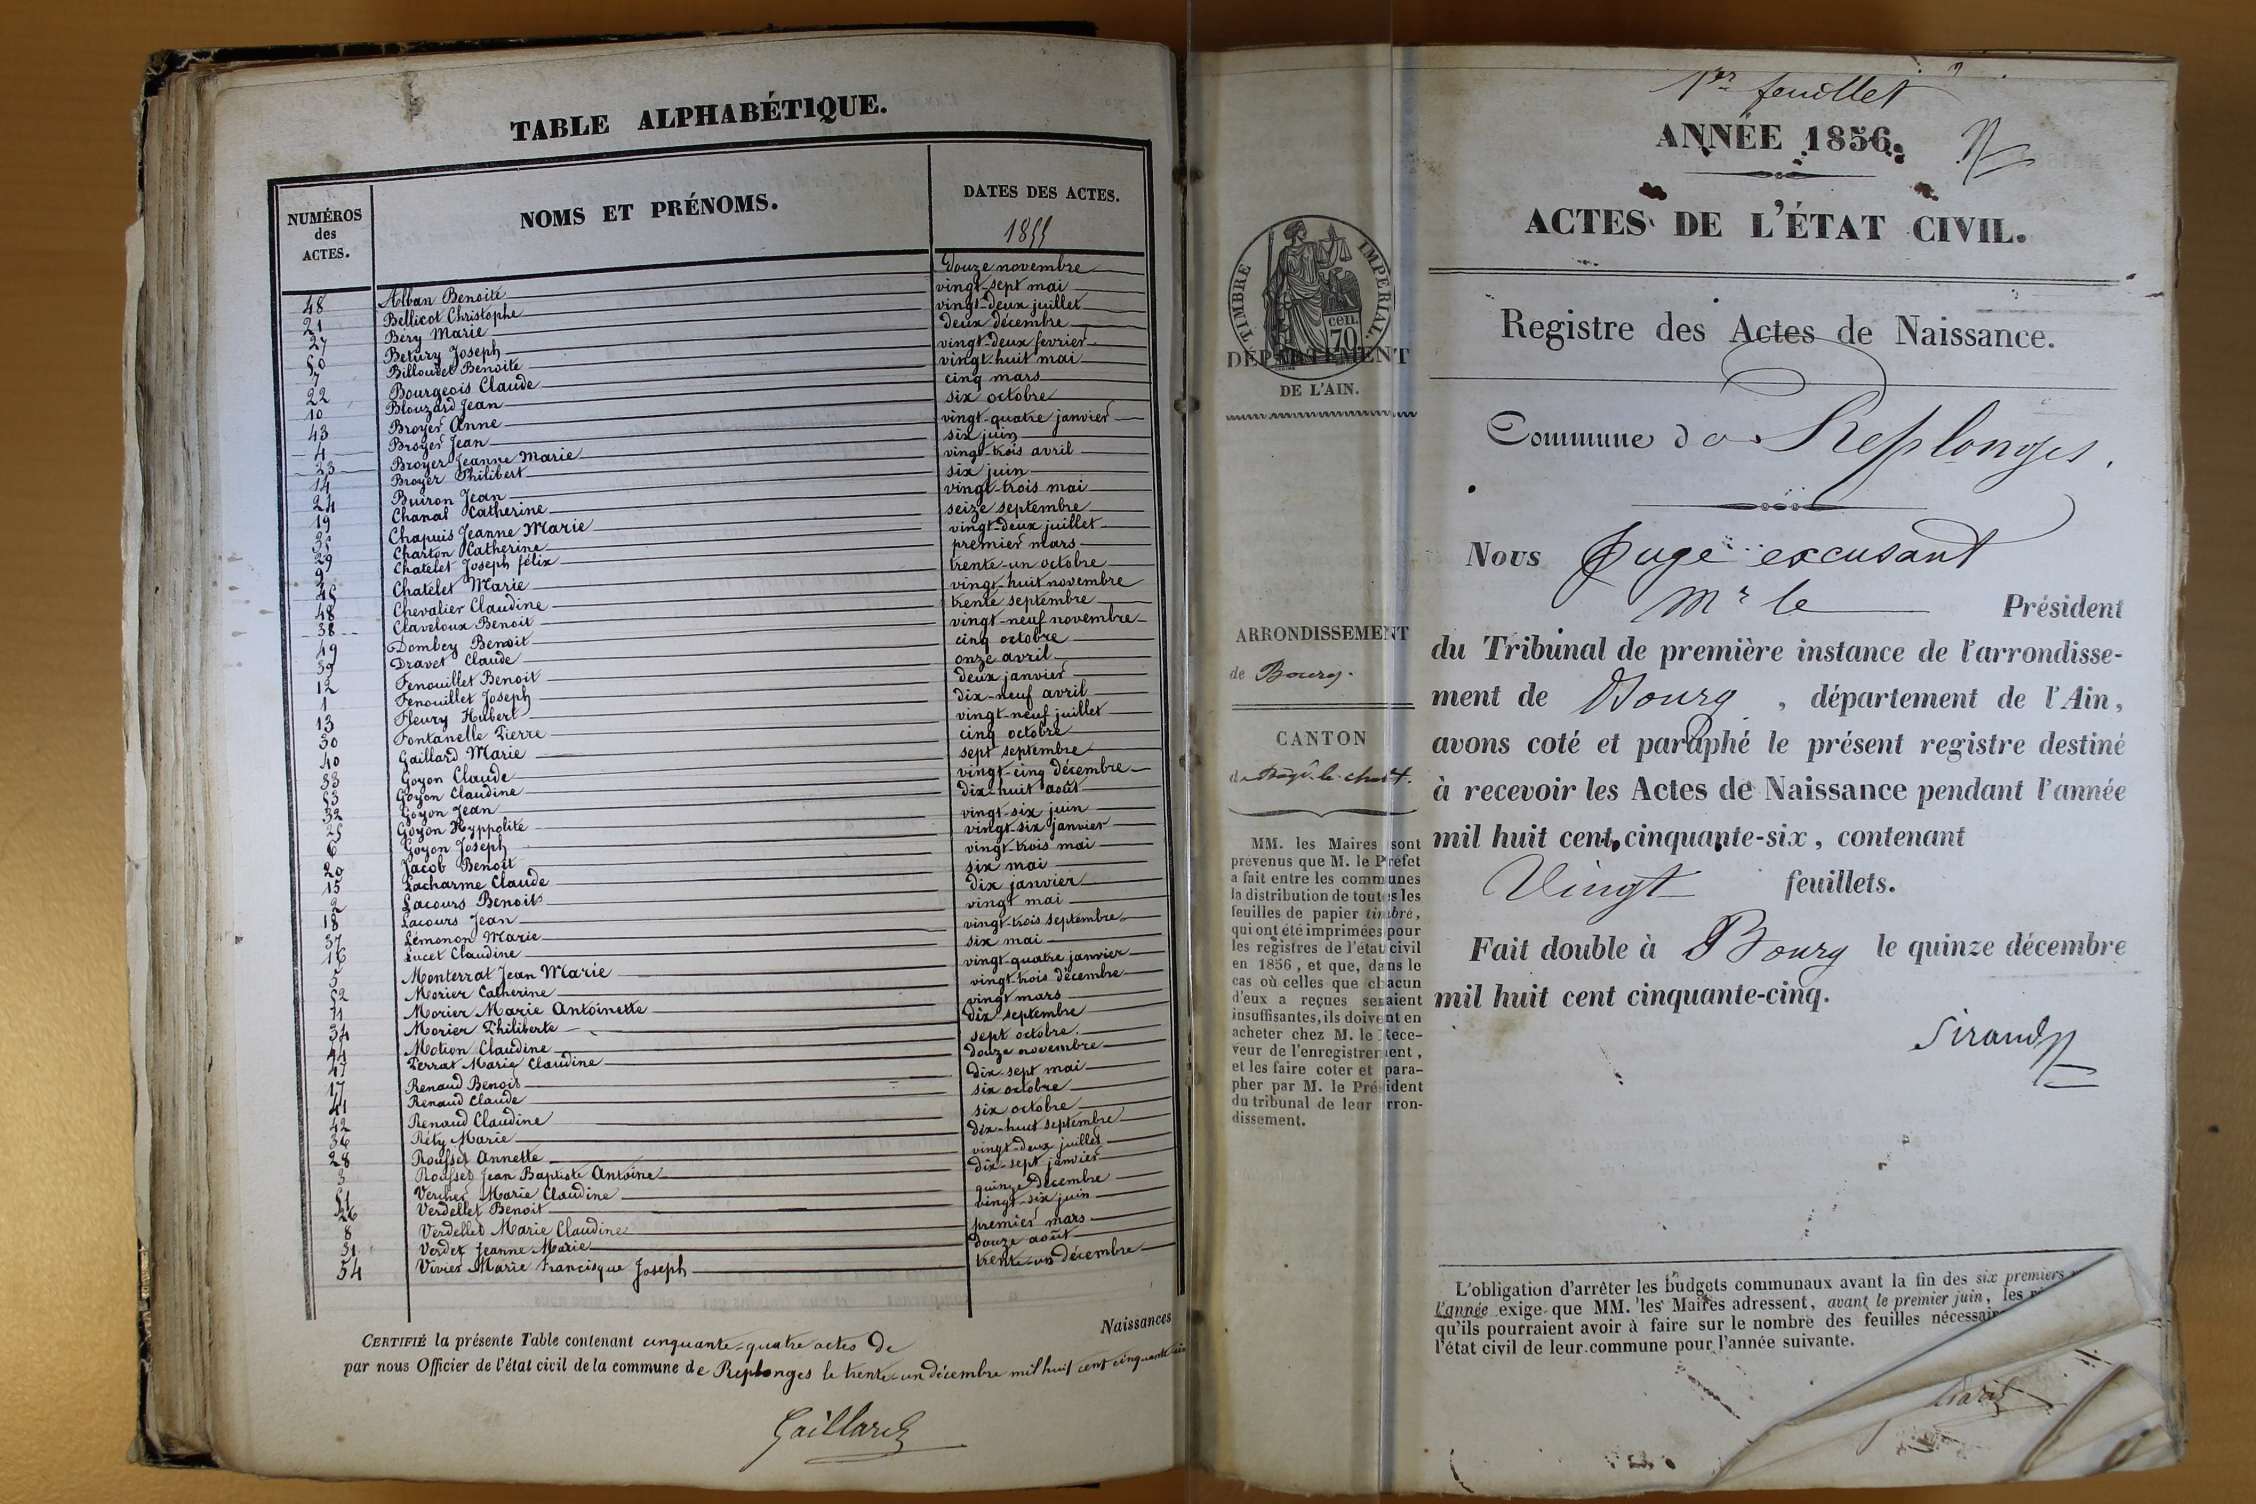 TABLE ALPHABÉTIQUE.
NUMÉROS
des
ACTES.
NOMS ET PRÉNOMS.
DATES DES ACTES.
1855
48 Alban Benoite douze novembre
21 Bellicot Christophe vingt-sept mai
27 Bery Marie vingt-deux juillet
50 Betury Joseph deux décembre
7 Billoudet Benoite vingt-deux fevrier
22 Bourgeois Claude vingt-huit mai
10 Blouzard Jean cinq mars
43 Broyer Anne six octobre
4 Broyer Jean vingt-quatre janvier
23 Broyer Jeanne Marie six juin
14 Broyer Philibert vingt-trois avril
24 Buiron Jean six juin
19 Chanal Catherine vingt-trois mai
35 Chapuis Jeanne Marie seize septembre
29 Charton Catherine vingt-deux juillet
9 Chatelet Joseph félix premier mars
45 Chatelet Marie trente-un octobre
48 Chevalier Claudine vingt-huit novembre
38 Claveloux Benoit trente septembre
49 Dombey Benoit vingt-neuf novembre
39 Dravet Claude cinq octobre
12 Fenouillet Benoit onze avril
1 Fenouillet Joseph deux janvier
13 Fleury Hubert dix-neuf avril
30 Fontanelle Pierre vingt-neuf juillet
40 Gaillard Marie cinq octobre
33 Goyon Claude sept septembre
53 Goyon Claudine vingt-cinq décembre
32 Goyon Jean dix-huit août
25 Goyon Hyppolite vingt-six juin
6 Goyon Joseph vingt-six janvier
20 Jacob Benoit vingt-trois mai
15 Lacharme Claude six mai
2 Lacours Benoit dix janvier
18 Lacours Jean vingt mai
37 Lémonon Marie vingt-trois septembre
16 Lucet Claudine six mai
5 Monterrat Jean Marie vingt-quatre janvier
52 Morier Catherine vingt-trois décembre
11 Morier Marie Antoinette vingt mars
34 Morier Philiberte dix septembre
44 Motion Claudine sept octobre
47 Perrat Marie Claudine douze novembre
17 Renaud Benoit dix-sept mai
41 Renaud Claude six octobre
42 Renaud Claudine six octobre
36 Réty Marie dix-huit septembre
28 Rousset Annette vingt-deux juillet
3 Rousset Jean Baptiste Antoine dix-sept janvier
51 Vercher Marie Claudine quinze Décembre
26 Verdellet Benoit vingt-six juin
8 Verdellet Marie Claudine premier mars
31 Verdet Jeanne Marie douze août
54 Vivier Marie Francisque Joseph trente-un Décembre
CERTIFIÉ la présente Table contenant cinquante-quatre actes de Naissances
par nous Officier de l'état civil de la commune de Replonges le trente-un décembre mil huit cent cinquante
Gaillard
TIMBRE IMPÉRIAL.
70 cen.
DÉPARTEMENT
DE L'AIN.
ARRONDISSEMENT
de Bourg.
CANTON
de Bâgé-le-chat.
MM. les Maires sont
prévenus que M. le Préfet
a fait entre les communes
la distribution de toutes les
feuilles de papier timbré,
qui ont été imprimées pour
les registres de l'état civil
en 1856, et que, dans le
cas où celles que chacun
d'eux a reçues seraient
insuffisantes, ils doivent en
acheter chez M. le Rece-
veur de l'enregistrement,
et les faire coter et para-
pher par M. le Président
du tribunal de leur arron-
dissement.
1er feuillet
ANNÉE 1856.
ACTES DE L'ÉTAT CIVIL.
Registre des Actes de Naissance.
Commune de Replonges.
Nous Juge excusant
Mr le Président
du Tribunal de première instance de l'arrondisse-
ment de Bourg, département de l'Ain,
avons coté et paraphé le présent registre destiné
à recevoir les Actes de Naissance pendant l'année
mil huit cent cinquante-six, contenant
Vingt feuillets.
Fait double à Bourg le quinze décembre
mil huit cent cinquante-cinq.
Sirand
L'obligation d'arrêter les budgets communaux avant la fin des six premiers
l'année exige que MM. les Maires adressent, avant le premier juin, les
qu'ils pourraient avoir à faire sur le nombre des feuilles
l'état civil de leur commune pour l'année suivante.